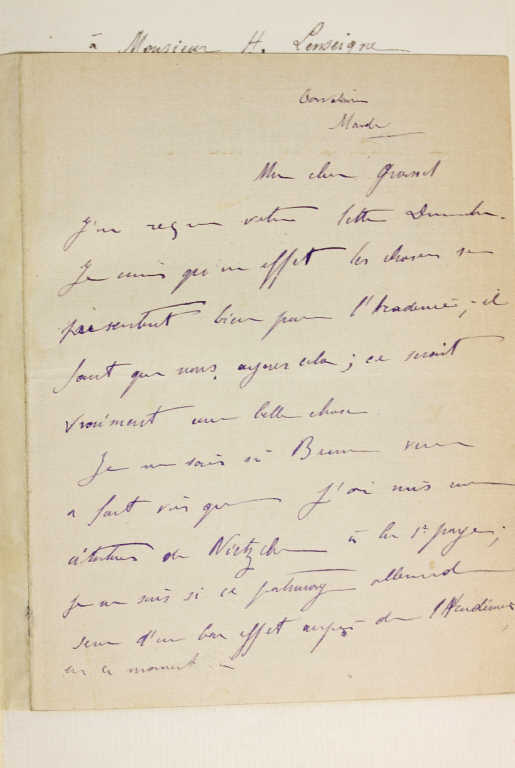 à Monsieur H. Lenseigne
Mardi
Mon cher Grand
J'ai reçu votre lettre Dimanche.
Je crois qu'en effet les choses se
présentent bien pour l'Académie ; il
faut que nous ayons cela ; ce serait
vraiment une belle chose
Je ne sais si
a fait voir que j'ai mis une
citation de Nietzche à la 1e page ;
je ne sais si ce patronage allemand
sera d'un bon effet auprès de l'Académie
en ce moment. –